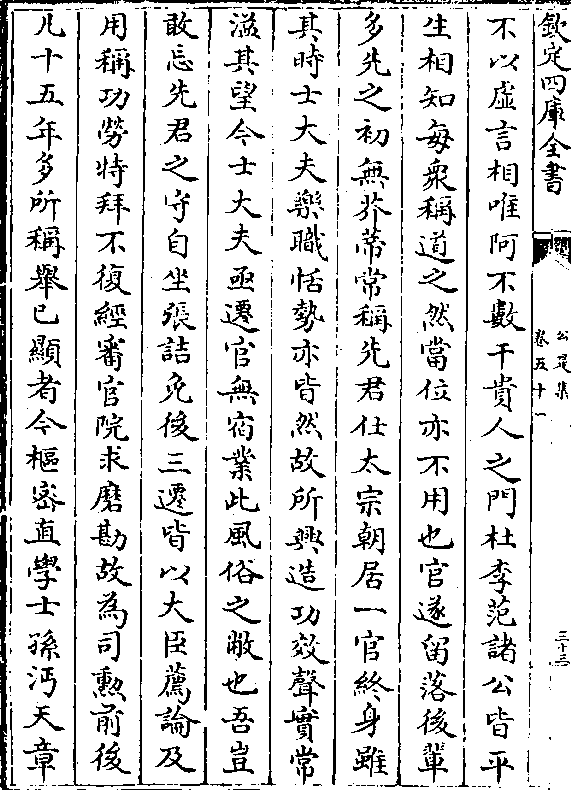 欽定四庫全書
公是集
卷五十一
三十三
不以虛言相唯阿不數干貴人之門杜李范諸公皆平
生相知每衆稱道之然當位亦不用也官遂留落後輩
多先之初無芥蔕常稱先君仕太宗朝居一官終身雖
其時士大夫樂職恬勢亦皆然故所興造功效聲實常
滋其望今士大夫亟遷官無宿業此風俗之敝也吾豈
敢忘先君之守自坐張詰免後三遷皆以大臣薦論及
用稱功勞特拜不復經審官院求磨勘故為司勲前後
凡十五年多所稱舉已顯者今樞密直學士孫沔天章